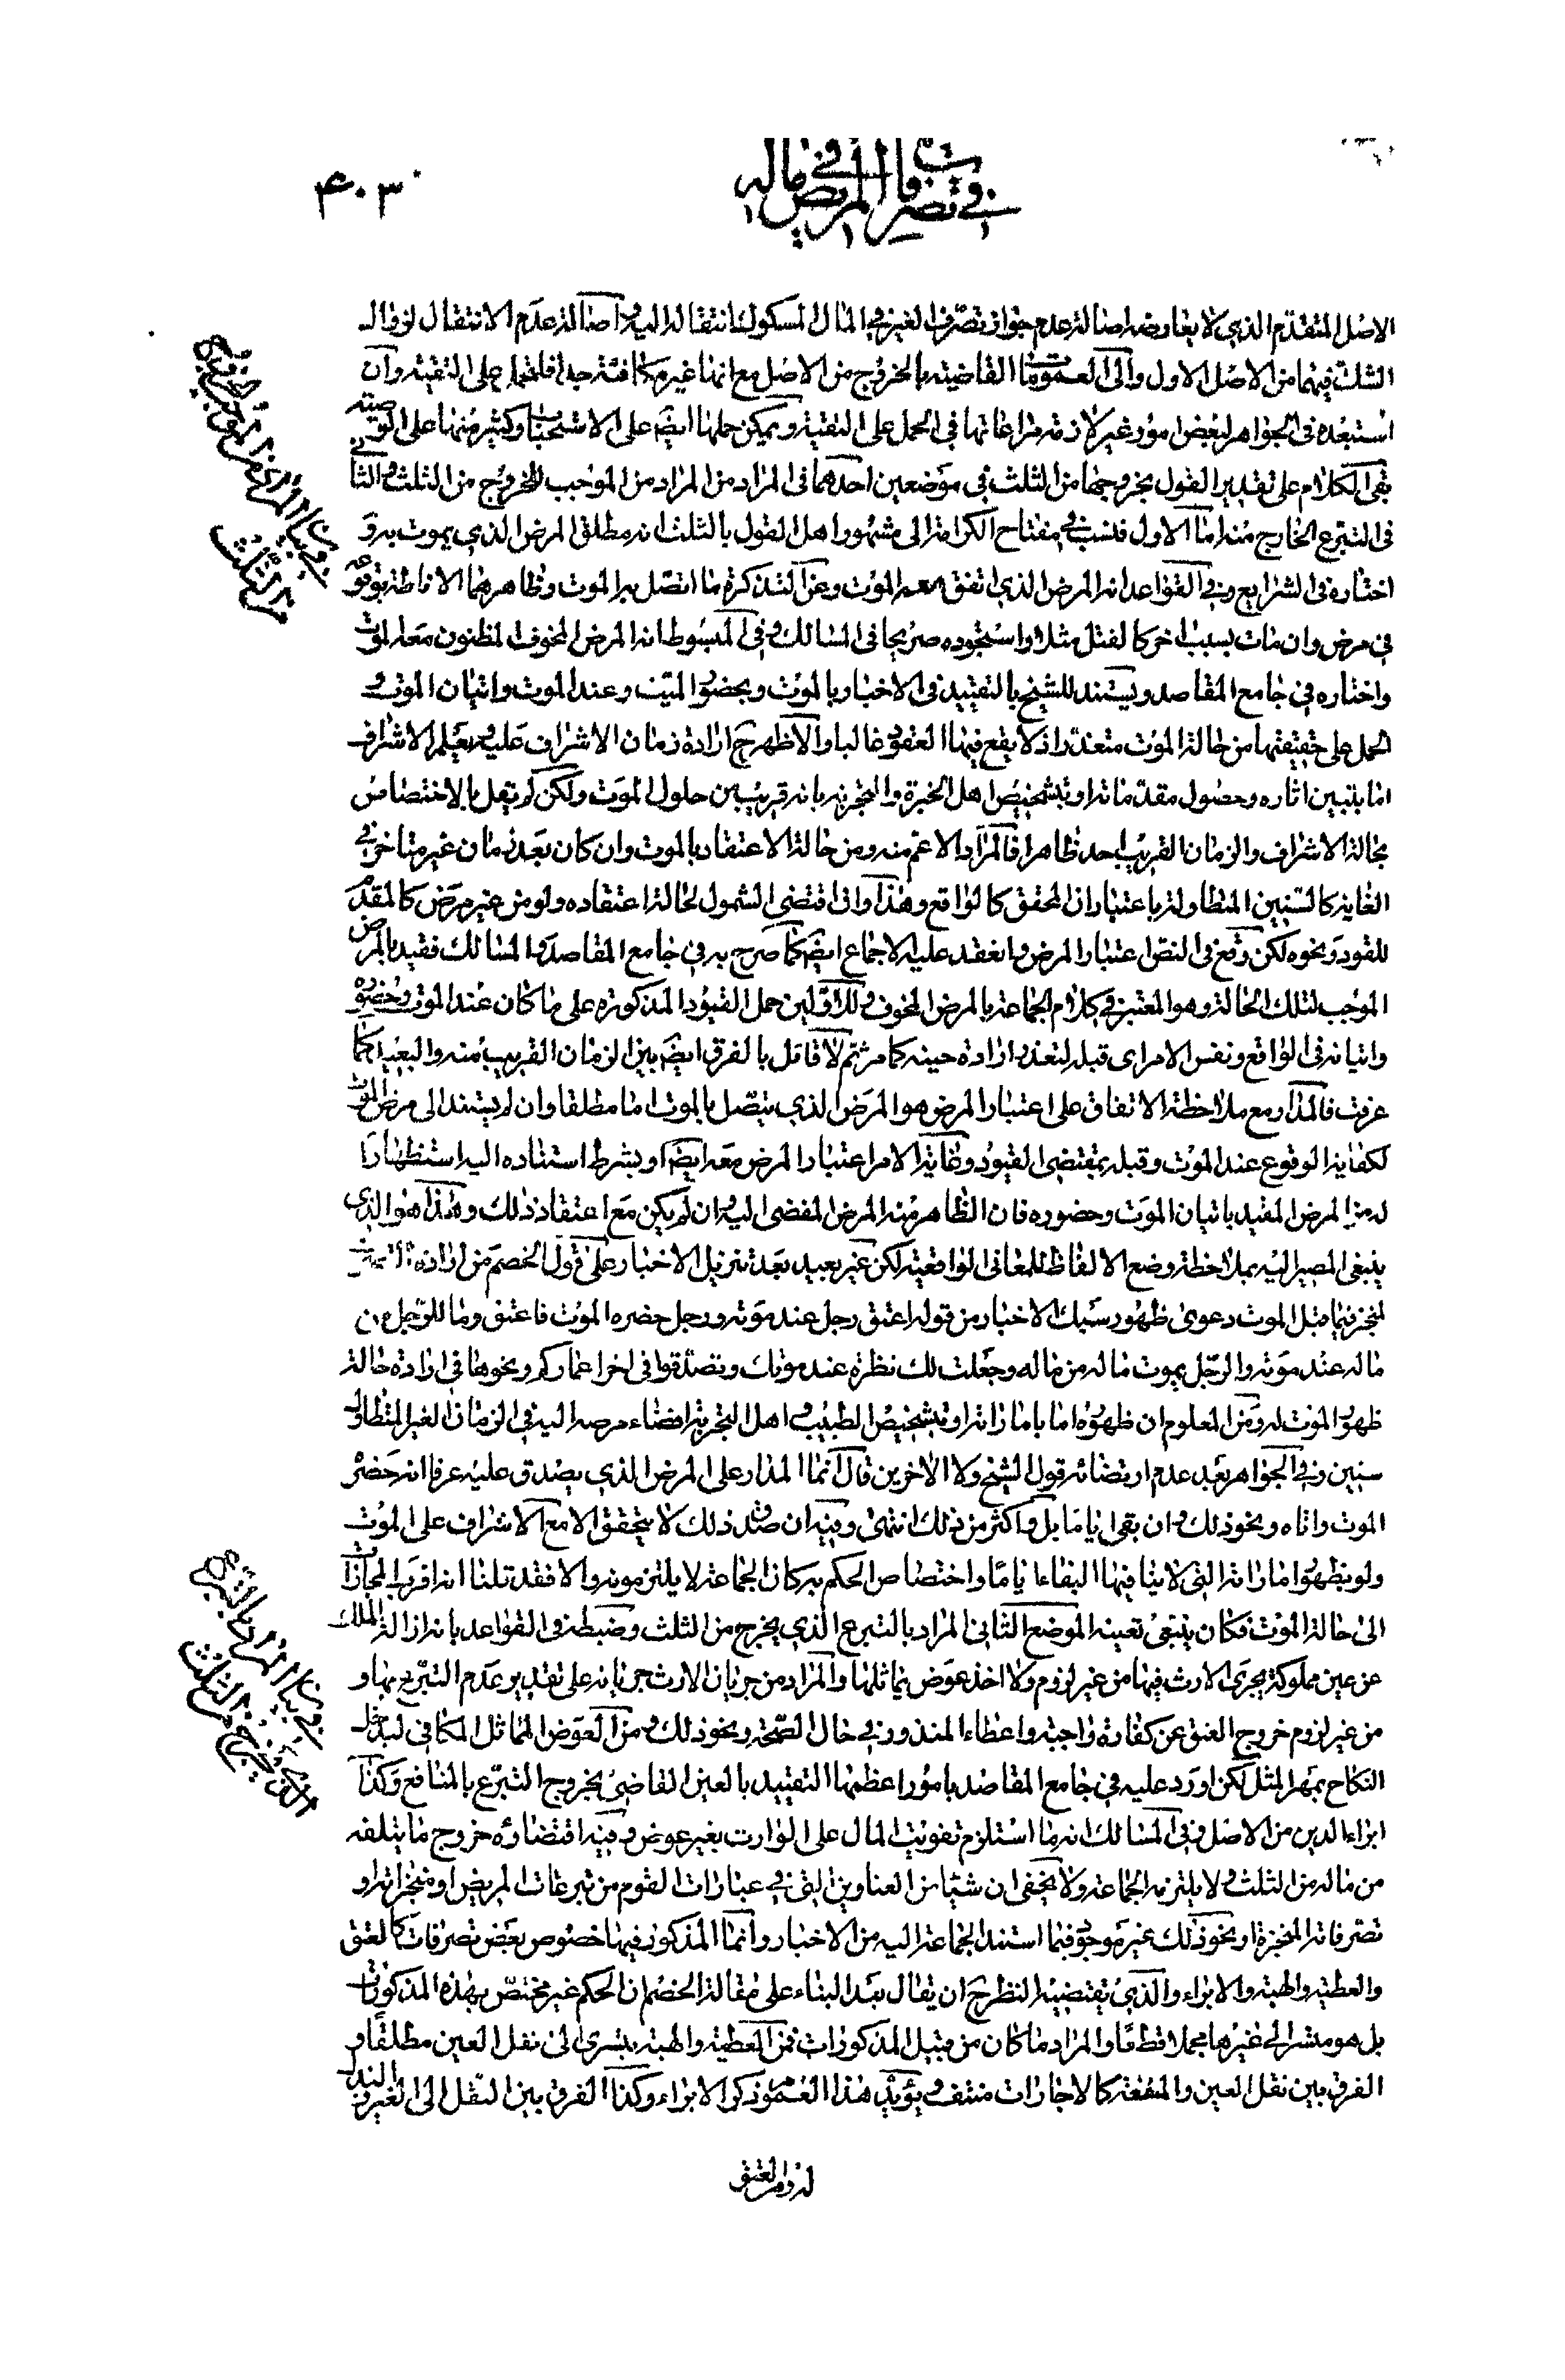 في تصرفات المريض في ماله
۴۰۳
الاصل المتقدم الذي لا يعارضه اصالة عدم جواز تصرف الغير في المال المشكوك انتقاله اليه واصالة عدم الانتقال لوفا لـ
الثلث فيهما من الاصل الاول والى العمومات القاضية بالخروج من الاصل مع انها غير مكافئة جدا فلتحمل على التقية وان
استبعده في الجواهر لبعض امور غير لازمة مراعاتها في الحمل على التقية ويمكن حملها ايضا على الاستحباب وكثير منها على الوصية
بقى الكلام على تقدير القول بخروجها من الثلث في موضعين احدهما في المراد من المراد من الموجب للخروج من الثلث والثاني
في التبرع الخارج منه اما الاول فنسب في مفتاح الكرامة الى مشهور اهل القول بالثلث انه مطلق المرض الذي يموت به وقد
اختاره في الشرايع وفي القواعد انه المرض الذي اتفق معه الموت وعن التذكرة ما اتصل به الموت وظاهرهما الاناطة بوقوعه
في مرض وان مات بسبب اخر كالقتل مثلا واستجوده صريحا في المسالك وفي المبسوط انه المرض المخوف المظنون معه الموت
واختاره في جامع المقاصد ويستند للشيخ بالتقييد في الاخبار بالموت وبحضور الميت وعند الموت واتيان الموت و
الحمل على حقيقتها من حالة الموت متعذر اذ لا يقع فيها العقود غالبا والاظهر ح ارادة زمان الاشراف عليه ويعلم الاشراف
اما بتبين اثاره وحصول مقدماته او بتشخيص اهل الخبرة والتجربة بانه قريب من حلول الموت ولكن لم يقل بالاختصاص
بحالة الاشراف والزمان القريب احد ظاهرا فالمراد الاعم منه ومن حالة الاعتقاد بالموت وان كان بعد زمان غير متاخر في
الغاية كالسنين المتطاولة باعتبار ان المحقق كالواقع وهذا وان اقتضى الشمول لحالة اعتقاده ولو من غير مرض كالمقدم
للقود ونحوه لكن وقع في النص اعتبار المرض وانعقد عليه الاجماع ايضا كما صرح به في جامع المقاصد والمسالك فقيد بالمرض
الموجب لتلك الحالة وهو المعتبر في كلام الجماعة بالمرض المخوف وللاولين حمل القيود المذكورة على ما كان عند الموت وحضوره
واتيانه في الواقع ونفس الامر اى قبله لتعذر ارادة حينه كما مر ثم لا قائل بالفرق ايضا بين الزمان القريب منه والبعيد كما
عرفت فالمدار مع ملاحظة الاتفاق على اعتبار المرض هو المرض الذي يتصل بالموت اما مطلقا وان لم يستند الى مرض الموت
لكفاية الوقوع عند الموت وقبله بمقتضى القيود وغاية الامر اعتبار المرض معه ايضا او بشرط استناده اليه استظهارا
له من المرض المقيد باتيان الموت وحضوره فان الظاهر منه المرض المفضى اليه وان لم يكن مع اعتقاد ذلك وهذا هو الذي
ينبغى المصير اليه بملاحظة وضع الالفاظ للمعاني الواقعية لكن غير بعيد بعد تنزيل الاخبار على قول الخصم من ارادة
المنجز فيما قبل الموت دعوى ظهور سبك الاخبار من قوله اعتق رجل عند موته ورجل حضره الموت فاعتق وما للرجل من
ماله عند موته والرجل يموت ماله من ماله وجعلت لك نظرة عند موتك وتصدقوا في اخر اعماركم ونحوها في ارادة حالة
ظهور الموت له ومن المعلوم ان ظهوره اما باماراته او بتشخيص الطبيب واهل التجربة افضاء مرضه اليه في الزمان الغير المتطاول
سنين وفي الجواهر بعد عدم ارتضائه قول الشيخ ولا الاخرين قال انما المدار على المرض الذي يصدق عليه عرفا انه حضر
الموت واتاه ونحو ذلك وان بقى اياما بل واكثر من ذلك انتهى وفيه ان صدق ذلك لا يتحقق الا مع الاشراف على الموت
ولو بظهور اماراته التي لا ينافيها البقاء اياما واختصاص الحكم به كان الجماعة لا يلتزمونه والا فقد تلنا انه اقرب المجازات
الى حالة الموت فكان ينبغى تعينه الموضع الثاني المراد بالتبرع الذي يخرج من الثلث وضبطه في القواعد بانه ازالة الملك
عن عين مملوكة يجرى الارث فيها من غير لزوم ولا اخذ عوض يماثلها والمراد من جريان الارث جريانه على تقدير عدم التبرع بها و
من غير لزوم خروج العتق عن كفارة واجبة واعطاء المنذور في حال الصحة ونحو ذلك ومن العوض المماثل المكافى ليدخل
النكاح بمهر المثل لكن اورد عليه في جامع المقاصد بامور اعظمها التقييد بالعين القاضى بخروج التبرع بالمنافع وكذا
ابراء الدين من الاصل وفي المسالك انه ما استلزم تفويت المال على الوارث بغير عوض وفيه اقتضاؤه خروج ما يتلفه
من ماله من الثلث ولا يلتزمه الجماعة ولا يخفى ان شيئا من العناوين التي في عبارات القوم من تبرعات المريض او منجزاته او
تصرفاته المنجزة او نحو ذلك غير موجود فيما استند الجماعة اليه من الاخبار وانما المذكور فيها خصوص بعض تصرفات كالعتق
والعطية والهبة والابراء والذي يقتضيه النظر ح ان يقال بعد البناء على مقالة الخصم ان الحكم غير مختص بهذه المذكورات
بل هو متسر الى غيرها مجملا قطعا والمراد ما كان من قبيل المذكورات فمن العطية والهبة يتسرى الى نقل العين مطلقا و
الفرق بين نقل العين والمنفعة كالاجارات منتف ويؤيد هذا العموم ذكر الابراء وكذا الفرق بين النقل الى الغير والنذر
لزوم العتق
في بيان المراد من المرض الموجب للخروج من الثلث
في بيان المراد بالتبرع الذي يخرج من الثلث